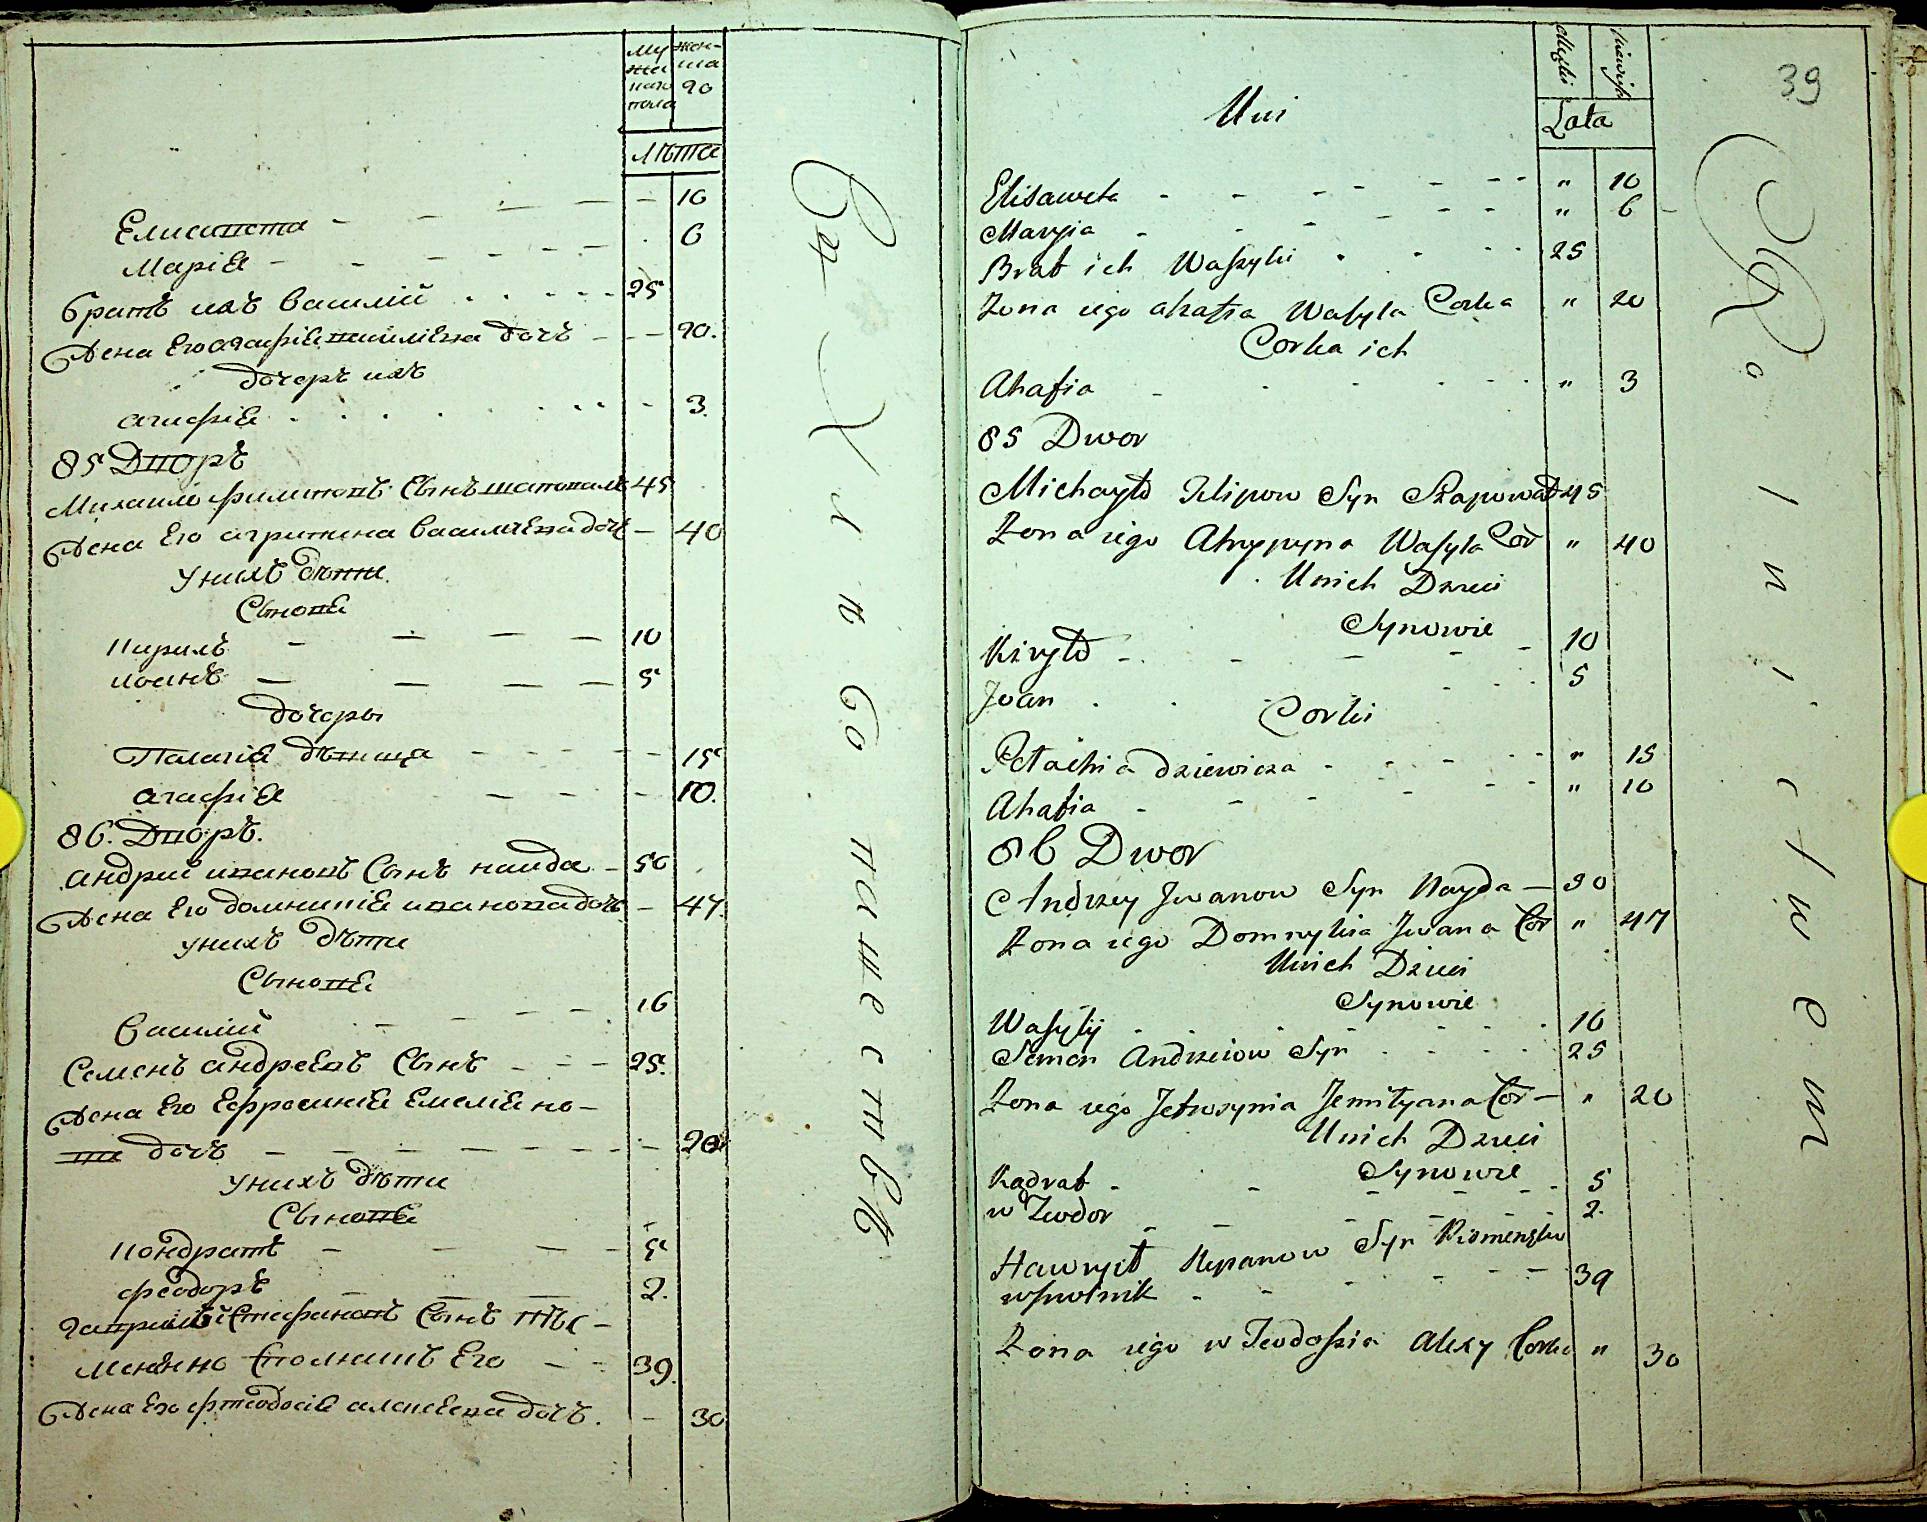 Мужескаго пола
женска
го
лѣта
Елисавета - - - - - 10
Маріѧ - - - - - 6
братъ ихъ василій . . . - - 25
Жена Его агафіѧ василіева дочь - - - 20.
дочерь ихъ
агафіѧ . . . . . . - 3.
85 Дворъ
Михаило филиповъ Сынъ шаповалъ 45
Жена Его агрипина василіева дочь - 40
У нихъ дѣти
Сыновѧ
Кирилъ - - - - 10
иоанъ - - - - 5
дочеры
Палагіѧ дѣвица - - - - - 15
агафіѧ - - - - 10.
86. Дворъ.
андрей ивановъ Сынъ наида - 50
Жена Его домникіѧ иванова дочь - 47.
у нихъ дѣти
Сыновѧ
василій - - - - . 16
Семенъ андреевъ Сынъ - - - 25.
Жена Его Ефросиніѧ Емеліѧно-
ва дочь - - - - - - - - 20
у нихъ дѣти
Сыновѧ
кондратъ - - - 5
феодоръ - - - 2.
гаврилъ Стефановъ Сынъ
Его - - 39.
Жена Его фтеодосіѧ алексеева дочь. - 30
Съ Хлибо пашествѣ
39
Męzki
Niewiesc
Lata
Uni
Elisaweta - - - - - - - " 10
Maryia - - - - - - " 6 -
Brat ich Waszylii . . . . 25
Zona iego ahafia Wasyla Corka " 20
Corka ich
Ahafia - - - - - - " 3
85 Dwor
Michayło Filipow Syn Szapował 45
Zona iego Ahrypyna Wasyla Cor " 40
Unich Dzieci
Synowie
Kiryło - - - - - 10
Jwan . . . - - 5
Corki
Pełachia dziewicza - - - - - " 15
Ahafia - - - - - - " 10
86 Dwor
Andrzey Jwanow Syn Nayda - 50
Zona iego Domnykia Jwana Cor " 47
Unich Dzieci
Synowie
Wasylij - . - - - - . 16
Semen Andrzeiow Syn . - - . 25
Zona iego Jefrozynia Jemilyana Cor - " 20
Unich Dzieci
Synowie
Kadrat - - - - - - 5
w Teodor - - - - - - 2.
Hawrył Stepanow Syn
wspolnik - - - - - - 39
Zona iego w Teodoszia Alexy Corka " 30
Rolnictwem